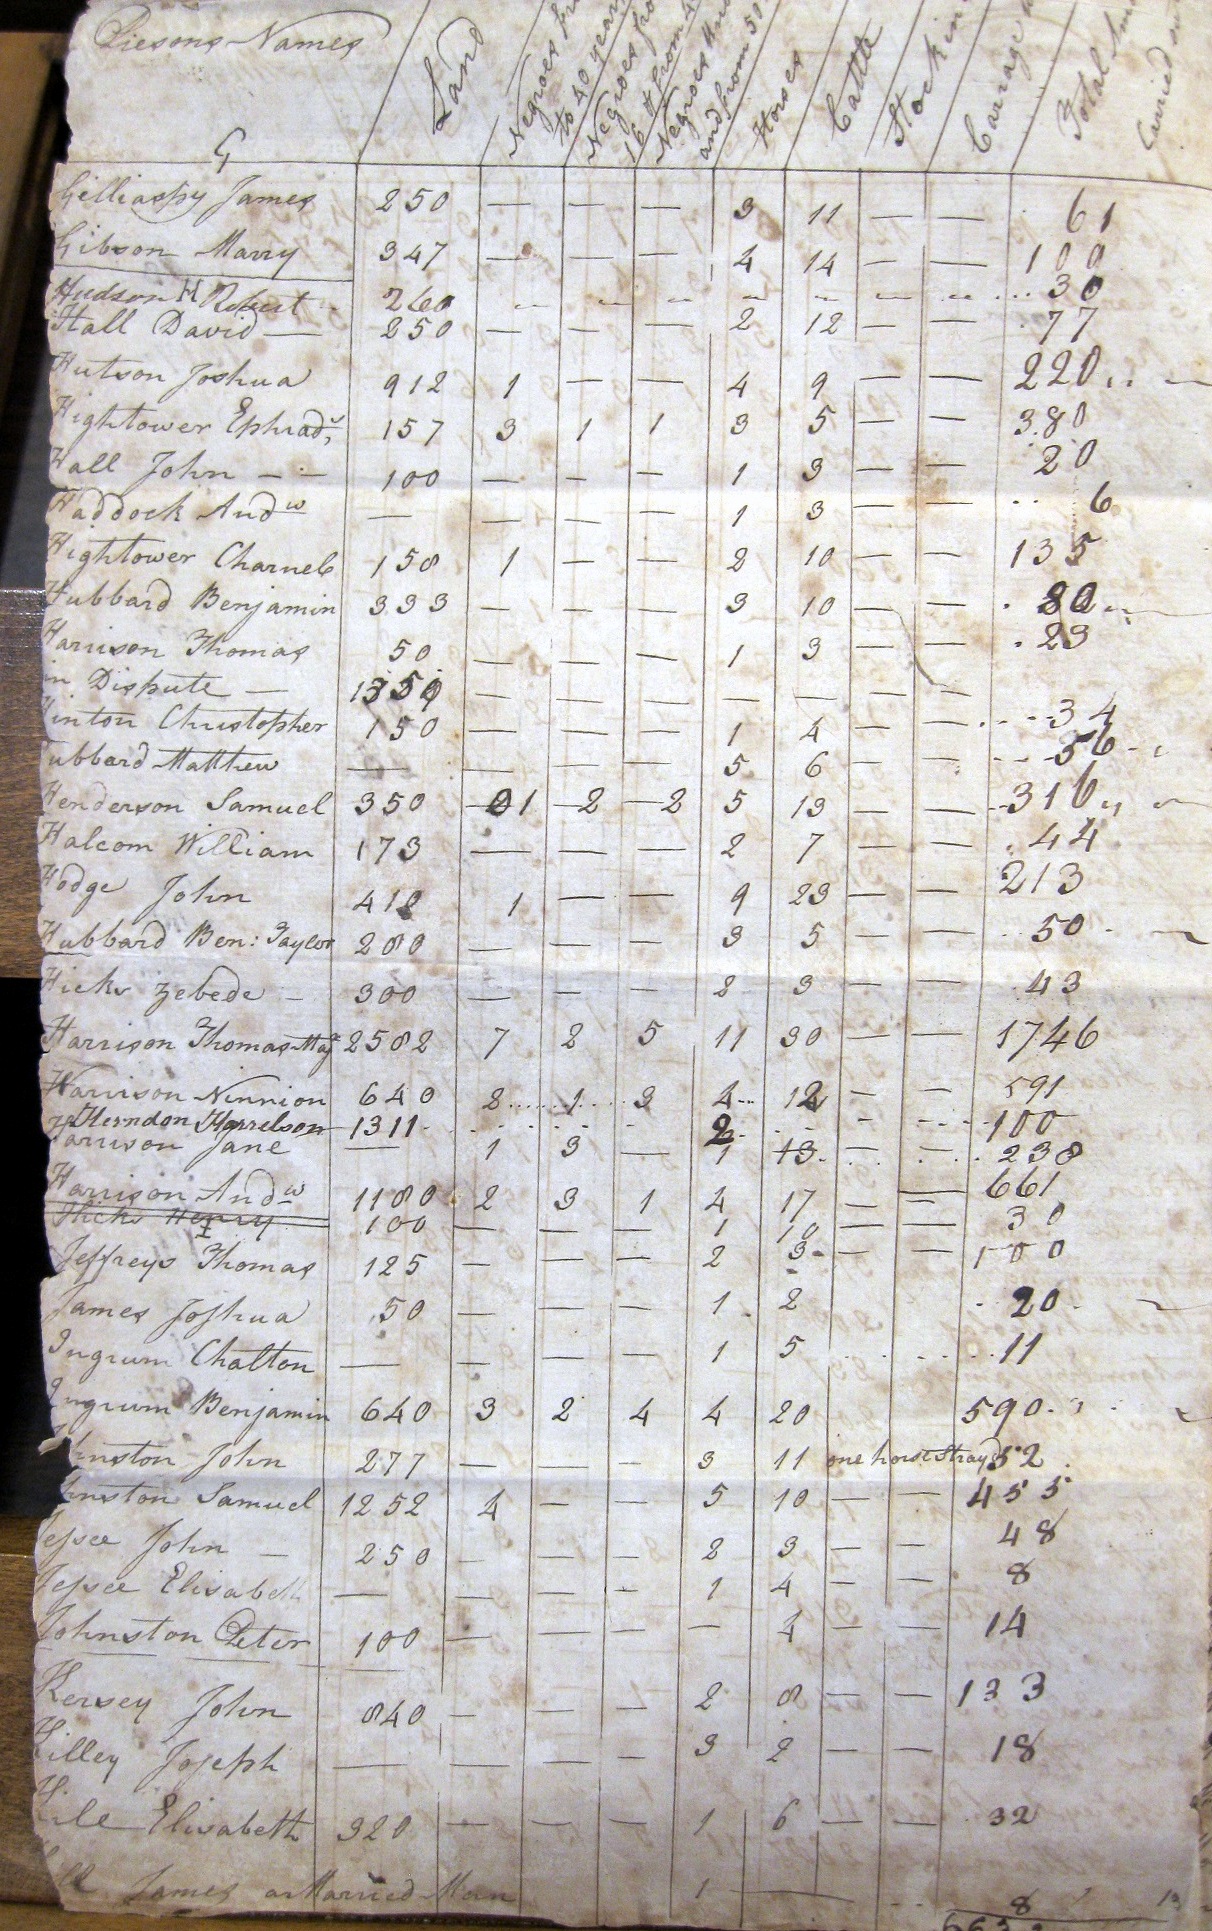 Persons Names Land Negroes from Negroes from Negroes Horses Cattle Stock in Carriage Total
to 40 years 16 & from and from 50 Carried
G
Gilliaspy James 250 — — — 3 11 — — 61
Gibson Marry 347 — — — 4 14 — — 100
H
Hudson Robert 260 30
Hall David — 250 — — — 2 12 — — 77
Hutson Joshua 912 1 — — 4 9 — — 220
Hightower 157 3 1 1 3 5 — — 380
Hall John — — 100 — — — 1 3 — — 20
Haddock Andw — — — — 1 3 — — 6
Hightower Charnel 158 1 — — 2 10 — — 135
Hubbard Benjamin 333 — — — 3 10 — — 80
Harrison Thomas 50 — — — 1 3 — — 23
in Dispute — 1350 — — — — — — —
Hinton Christopher 150 — — — 1 4 — — 34
Hubbard Matthew — — — — 5 6 — — 56
Henderson Samuel 350 1 2 2 5 13 — — 316
Halcom William 173 — — — 2 7 — — 44
Hodge John 412 1 — — 9 23 — — 213
Hubbard Ben: Taylor 280 — — — 3 5 — — 50
Hicks Zebede — 300 — — — 2 3 — — 43
Harrison Thomas Maj 2582 7 2 5 11 30 — — 1746
Harrison Ninnion 640 2 1 3 4 12 — — 591
Herndon Harrelson 1311 2 100
Harrison Jane — 1 3 — 1 13 238
Harrison Andw 1180 2 3 1 4 17 — — 661
Hicks Henry 100 — — — 1 10 — — 30
I
Jeffreys Thomas 125 — — — 2 3 — — 100
James Joshua 50 — — — 1 2 20
Ingrum Chalton — — — — 1 5 11
Ingrum Benjamin 640 3 2 4 4 20 590
Johnston John 277 — — — 3 11 one horse Stray 52
Johnston Samuel 1252 4 — — 5 10 — — 455
Jessee John — 250 — — — 2 3 — — 48
Jessee Elisabeth — — — — 1 4 — — 8
Johnston Peter 100 — — — — 4 — — 14
Kersey John 840 — — — 2 8 — — 133
Killey Joseph — — — — 3 2 — — 18
Elisabeth 320 — — — 1 6 — — 32
James a Married Man 1 — 8